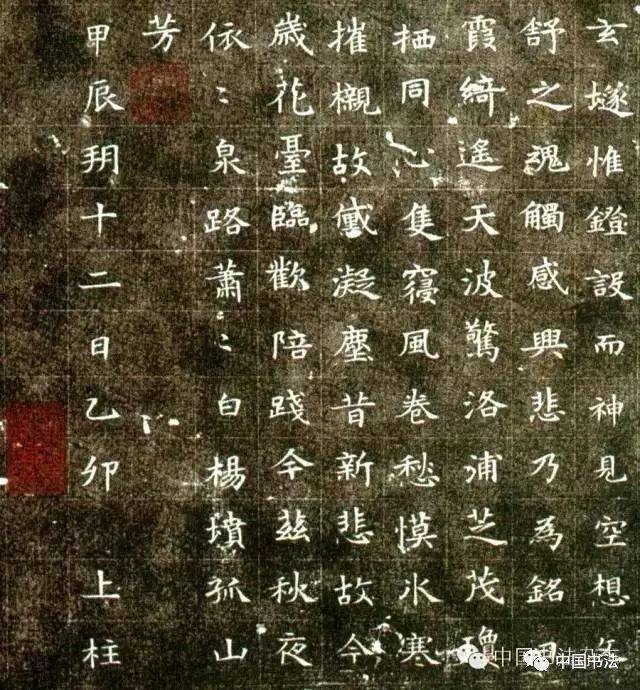 玄㙇惟鐙設而神見空想
舒之魂觸感興悲乃為銘
霞綺遙天波驚洛浦芝茂
栖同心隻寢風卷愁慔冰寒
摧櫬故黛凝塵昔新悲故今
歲花臺臨歡陪踐今茲秋夜
依〻泉路蕭〻白楊墳孤山
芳
甲辰朔十二日乙卯 上柱
中国书法
中国书法